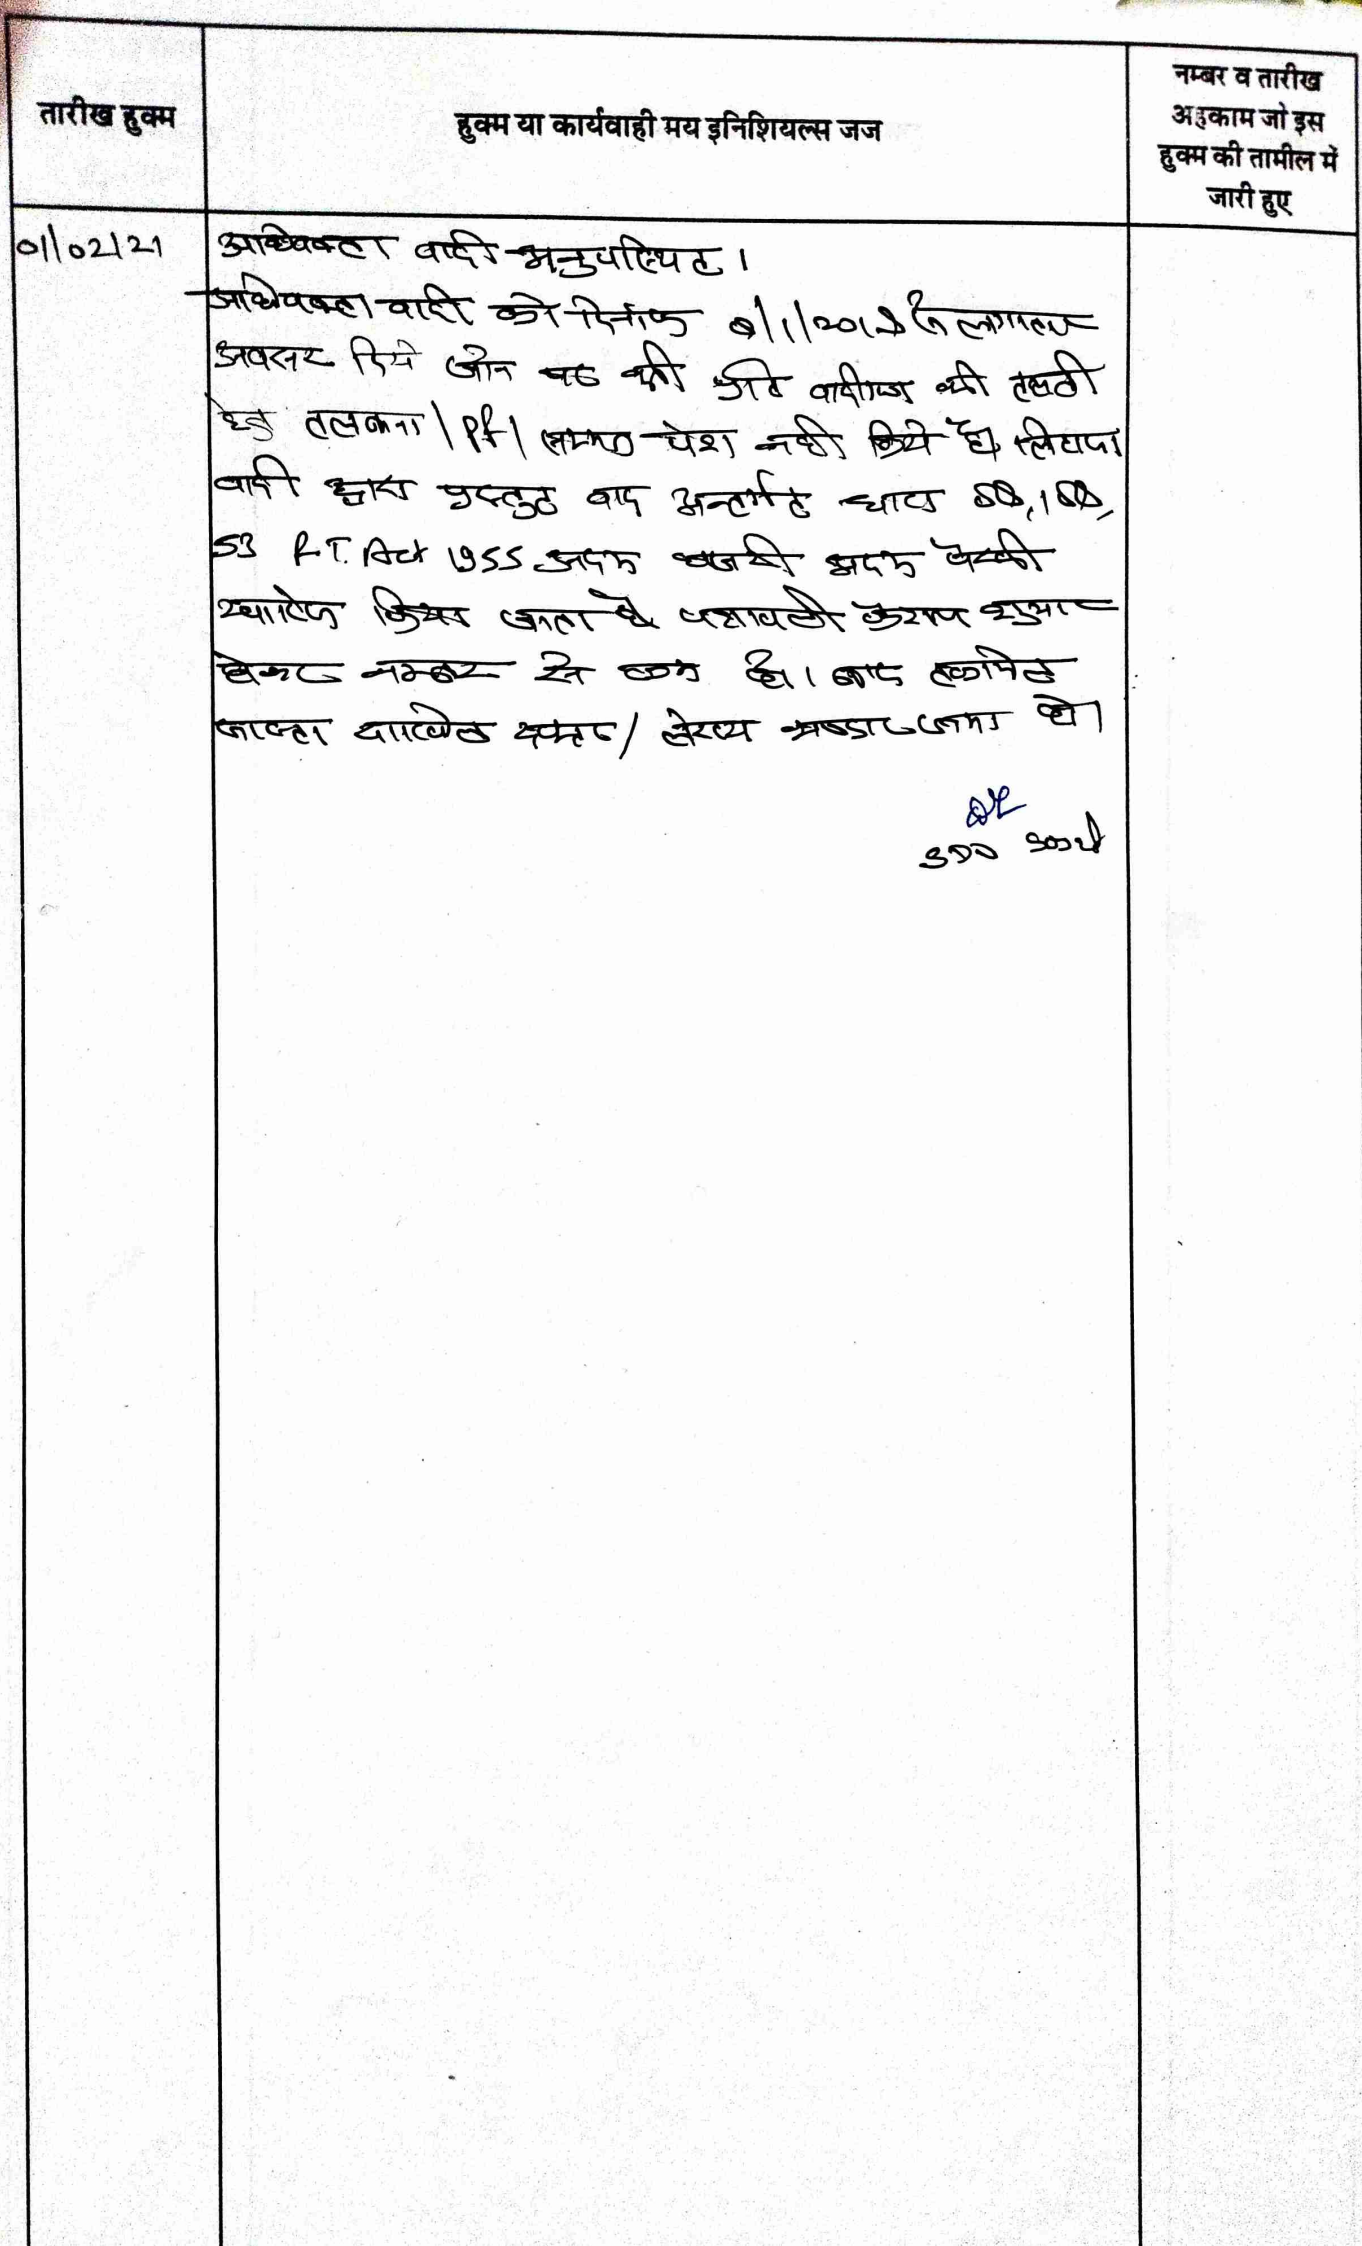 तारीख हुक्म
हुक्म या कार्यवाही मय इनिशियल्स जज
नम्बर व तारीख
अहकाम जो इस
हुक्म की तामील में
जारी हुए
01/02/21
अधिवक्ता वादी अनुपस्थित।
अधिवक्ता वादी को दिनांक /1/201 से लगातार
अवसर दिये जाने पर भी प्रति वादीगण की तलबी
हेतु तलबाना/PF/सम्मन पेश नही किये है, लिहाजा
वादी द्वारा प्रस्तुत वाद अन्तर्गत धारा 88, 188,
53 R.T. Act 1955 अदम हाजरी अदम पैरवी
खारिज किया जाता है पत्रावली फैसल शुमार
होकर नम्बर से कम हो। बाद तकमिल
जाब्ता दाखिल दफ्तर/लेख्य भण्डार जमा हो।
SDO